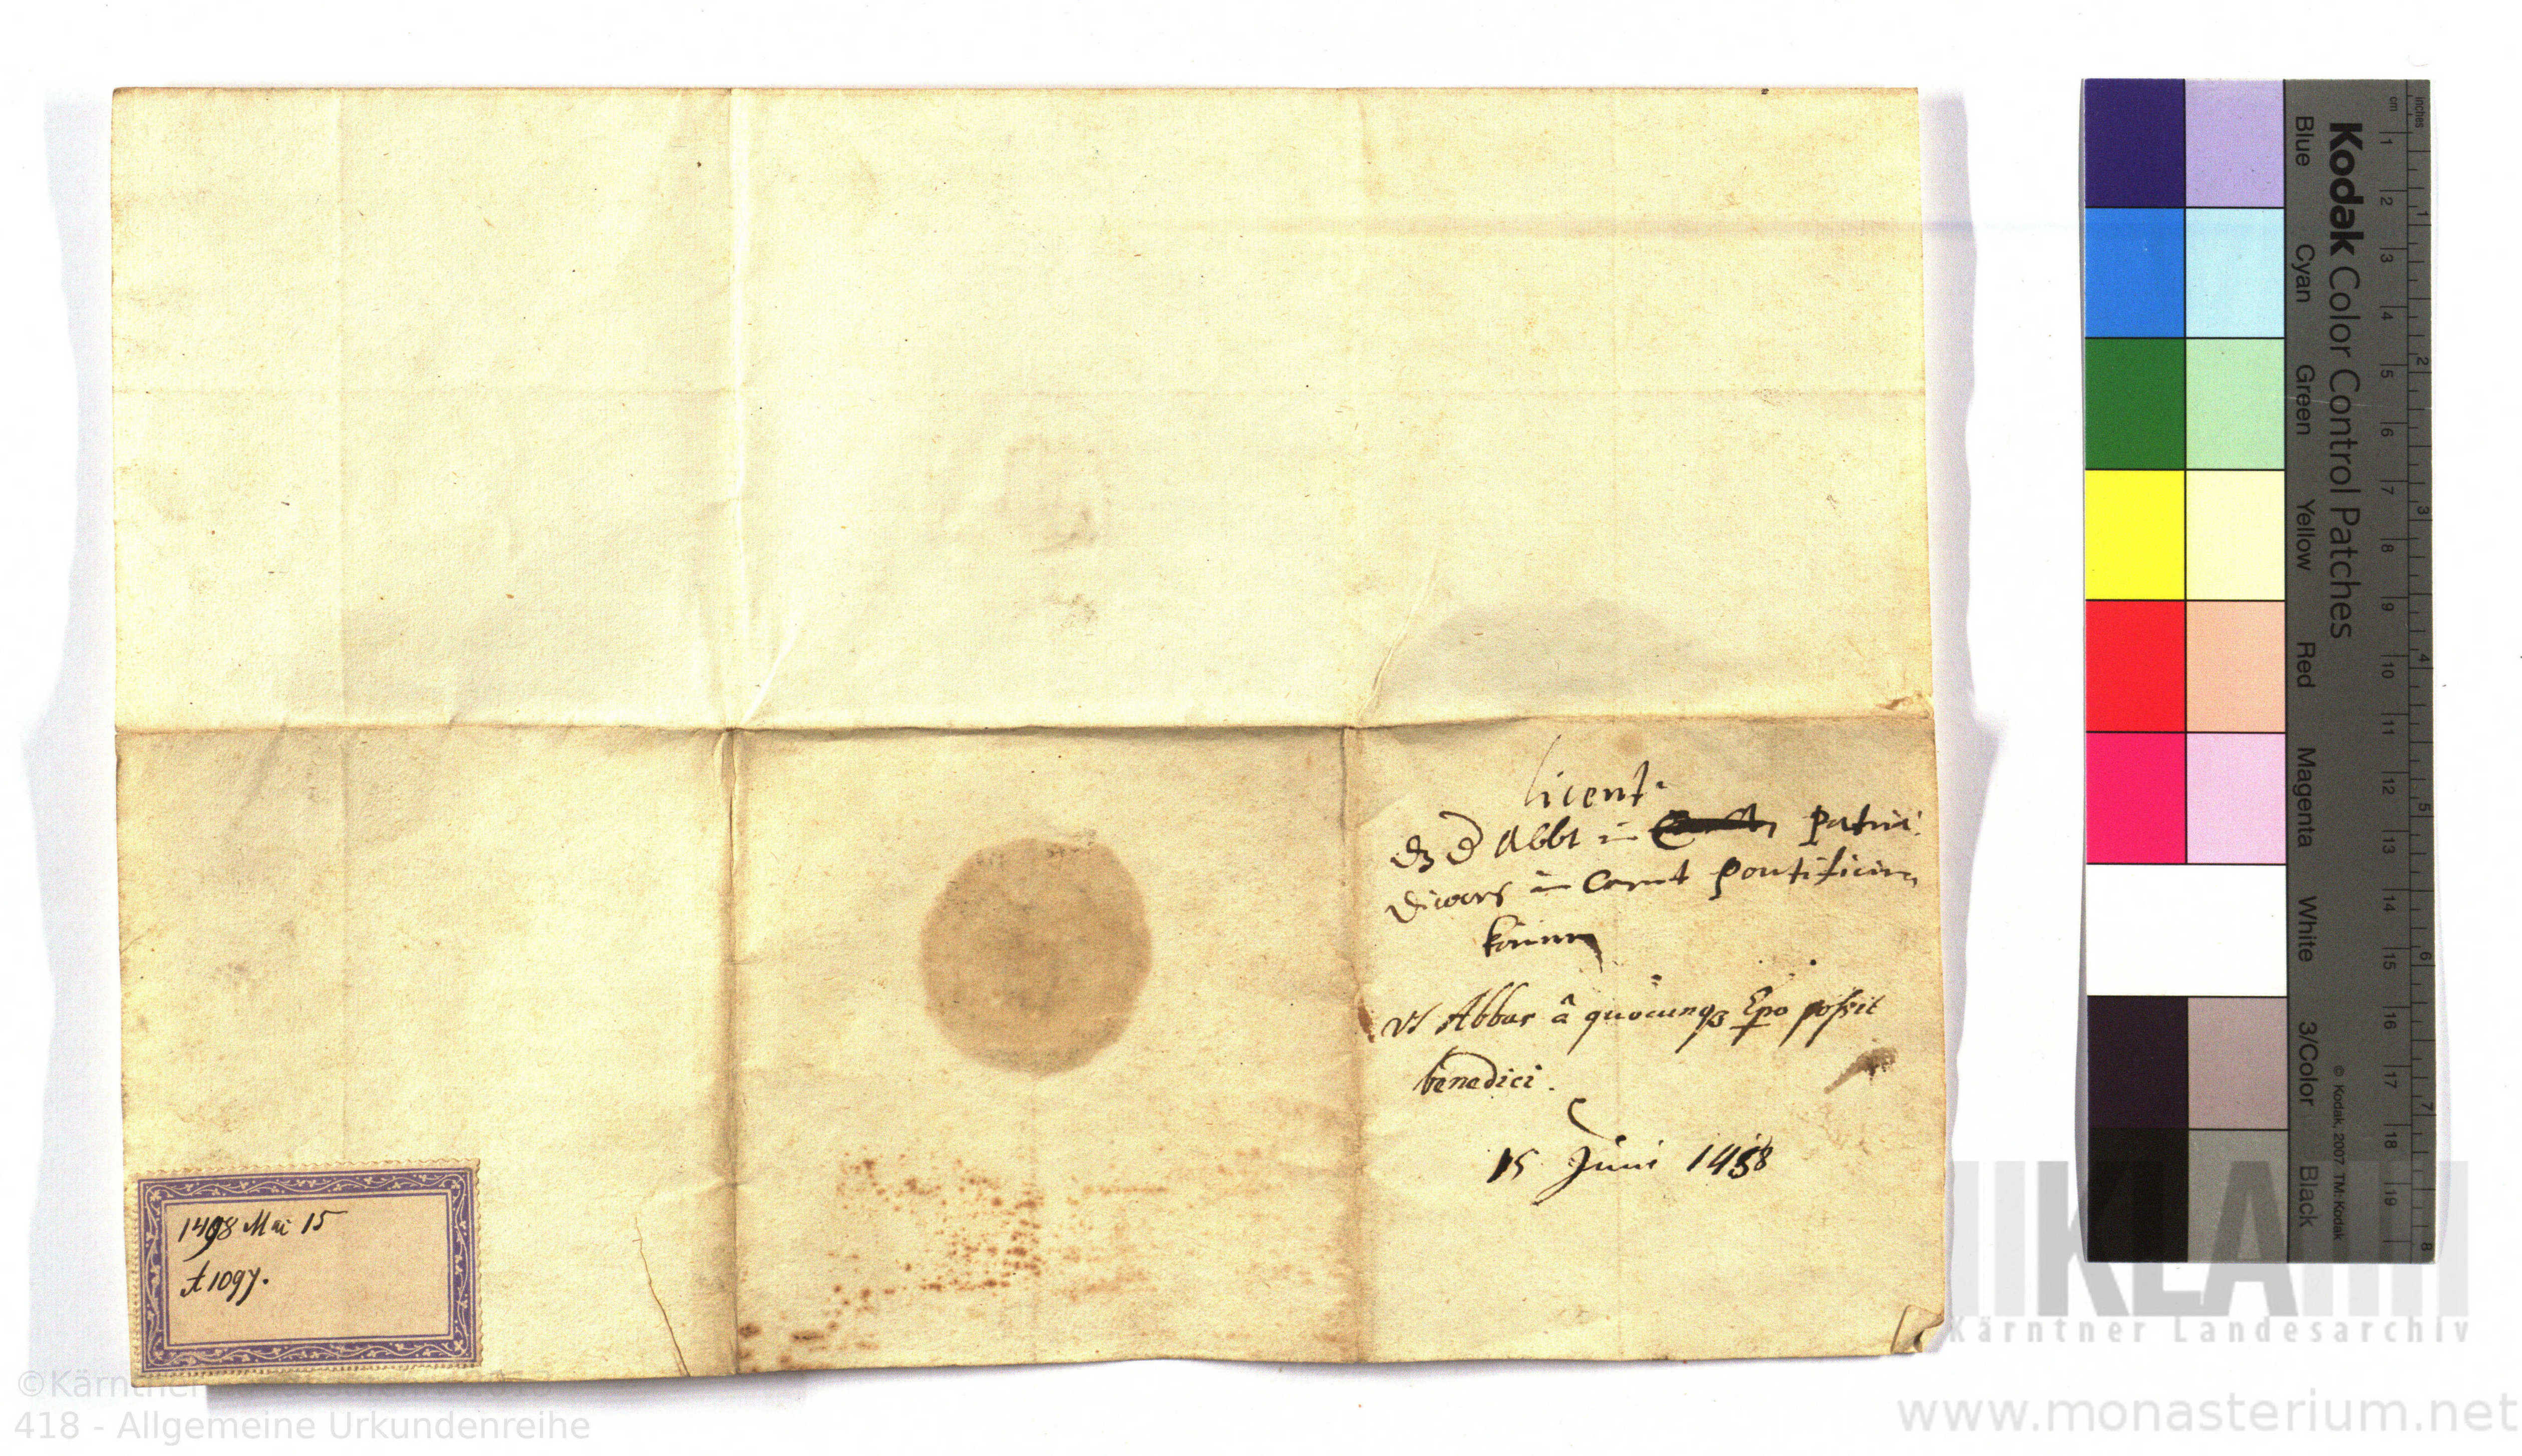 licent.
dz d Abbt in patri.
in pontificirn
Vt Abbas â quocunqz Epo possit
benedici.
15 Juni 1458
1498 Mai 15
A 1097.
Kodak Color Control Patches
Blue Cyan Green Yellow Red Magenta White 3/Color Black
© Kodak, 2007 TM: Kodak
cm 1 2 3 4 5 6 7 8 9 10 11 12 13 14 15 16 17 18 19
inches 1 2 3 4 5 6 7 8
KLA
Kärntner Landesarchiv
©Kärntner
418 - Allgemeine Urkundenreihe
www.monasterium.net